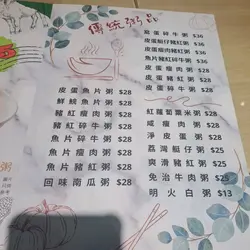 傳統粥品
皮蛋魚片粥 $28
鮮鯇魚片粥 $28
豬紅瘦肉粥 $28
豬紅碎牛粥 $28
魚片碎牛粥 $28
魚片瘦肉粥 $28
魚片豬紅粥 $28
回味南瓜粥 $28
碎牛粥 $36
皮蛋艇仔豬紅粥 $36
皮蛋瘦肉豬紅粥 $36
魚片豬紅碎牛粥 $36
皮蛋瘦肉粥 $28
皮蛋豬紅粥 $28
皮蛋碎牛粥 $28
紅蘿蔔粟米粥 $28
鹹瘦肉粥 $28
淨皮蛋粥 $28
荔灣艇仔粥 $25
爽滑豬紅粥 $25
免治牛肉粥 $25
明火白粥 $13